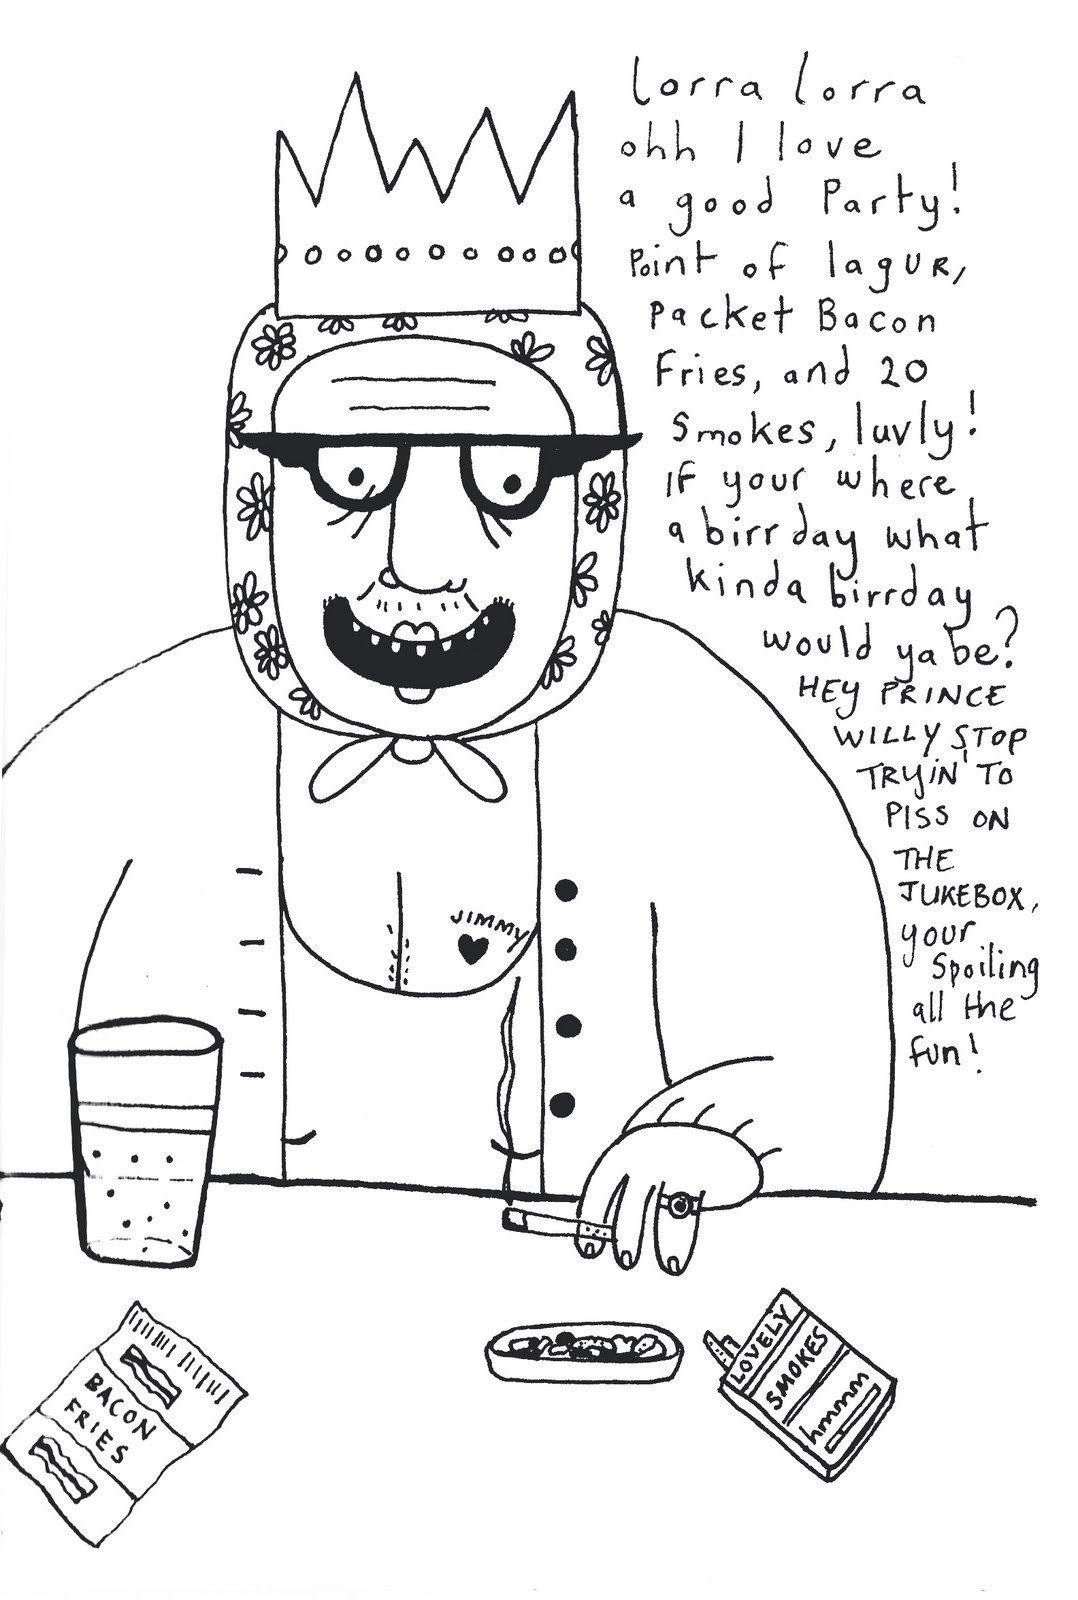 lorra lorra
ohh I love
a good Party!
Point of lagUR,
Packet Bacon
Fries, and 20
Smokes, luvly!
IF your where
a birrday what
kinda birrday
would ya be?
HEY PRINCE
WILLY STOP
TRYIN' TO
PISS ON
THE
JUKEBOX,
your
Spoiling
all the
fun!
JIMMY
BACON
FRIES
LOVELY
SMOKES
hmmm